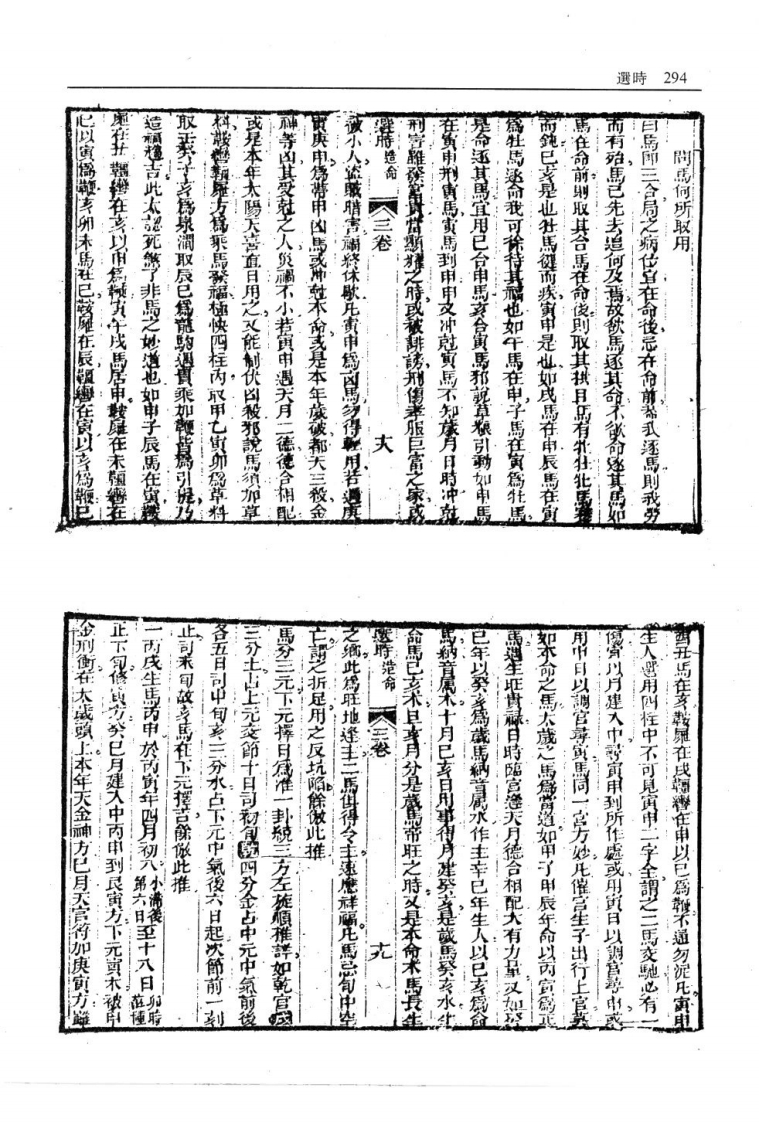 選時 294
問馬何所取用
曰馬卽三合局之病位宜在命後忌在命前蓋我逐馬則我勞
而有殆馬已先去追何及焉故欲馬逐其命不欲命逐其馬如
馬在命前則取其合馬在命後則取其拱且馬有牝牡牝馬
而鈍巳亥是也牡馬健而疾寅申是也如戌馬在申辰馬在寅
爲牡馬逐命我可徐待其福也如午馬在申子馬在寅爲牡馬
是命逐其馬宜用巳合申馬亥合寅馬邪說草料引動如申馬
在寅申刑寅馬寅馬到申申又冲尅寅馬不知歲月日時冲尅
刑害雖發富貴當顯耀之時或被誹謗刑傷孝服巨富之家或
選時造命 三卷 十八
被小人盜賊賠害禍終休歇凡寅申爲凶馬勿得輕用若遇庚
寅庚申爲帶甲凶馬或冲尅本命或是本年歲破都天三殺金
神等凶其受尅之人災禍不小若寅申遇天月二德德合相配
或是本年太陽天喜直日用之又能制伏凶殺邪說馬須加草
料鞍轡韁屜方爲乘馬發福極快四柱內取甲乙寅卯爲草料
取壬癸子亥爲泉澗取辰巳爲龍駒遇貴乘如鞭皆爲引提乃
造福趨吉此太認死煞了非馬之妙道也如申子辰馬在寅鞍
屜在丑韁轡在亥以申爲鞭寅午戌馬居申鞍屜在未韁轡在
巳以寅爲鞭亥卯未馬在巳鞍屜在辰韁轡在寅以亥爲鞭巳
酉丑馬在亥鞍屜在戌韁轡在申以巳爲鞭不通勿泥凡寅申
生人選用四柱中不可見寅申二字全謂之二馬交馳必有一
傷寅以月建入中尋寅申到所作處或用寅日以調宮尋申或
用申日以調宮尋寅馬同一宮方妙凡催官生子出行上官
如本命之馬太歲之馬爲當道如甲子甲辰年命以丙寅爲正
馬遇生旺貴祿日時臨宮逢天月德合相配大有力量又如
巳年以癸亥爲歲馬納音屬水作主辛巳年生人以己亥爲命
馬納音屬木十月己亥日用事得月建癸亥是歲馬癸亥水生
命馬己亥木且亥月分是歲馬帝旺之時又是本命木馬長生
選時造命 三卷 十九
之鄉此爲旺地逢生二馬俱得令主速應祥福凡馬忌旬中空
亡謂之折足用之反坑陷餘倣此推
馬分三元下元擇日爲准一卦統三方左旋順推詳如乾宮戌
三分土占上元交節十日司初旬乾四分金占中元中氣前後
各五日司中旬亥三分水占下元中氣後六日起次節前一刻
止司末旬故亥馬在下元擇吉餘倣此推
一丙戌生馬丙申於丙寅年四月初八小滿後第六日至十八日卯時芒種
正下旬修寅方癸巳月建入中丙申到艮寅方下元寅木被申
金刑衝在太歲頭上本年天金神方巳月天官符加庚寅方雖